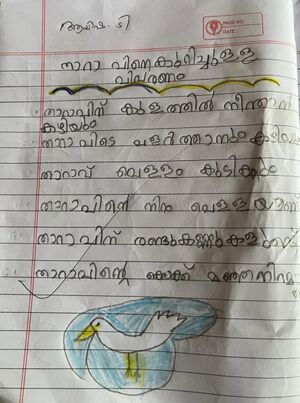 ആയിഷ. ടി
PAGE NO.
DATE
താറാ വിനെകുറിച്ചുള്ള
വിവരണം
താറാവിന് കുളത്തിൽ നീന്താൻ
കഴിയും
താറാവിടെ പളർത്താനും കഴിയും
താറാവ് വെള്ളം കുടിക്കും
താറാവിന്റെ നിറം വെള്ളയാണ്
താറാവിന് രണ്ടുകണ്ണുകളുണ്ട്
താറാവിന്റെ കൊക്ക് മഞ്ഞനിറമ